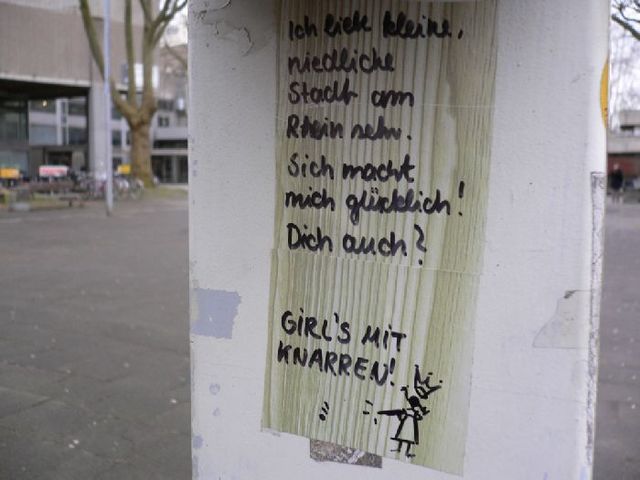 Ich lieb kleine,
niedliche
Stadt am
Rhein sehr.
Sich macht
mich glücklich!
Dich auch?
GIRL'S MIT
KNARREN!